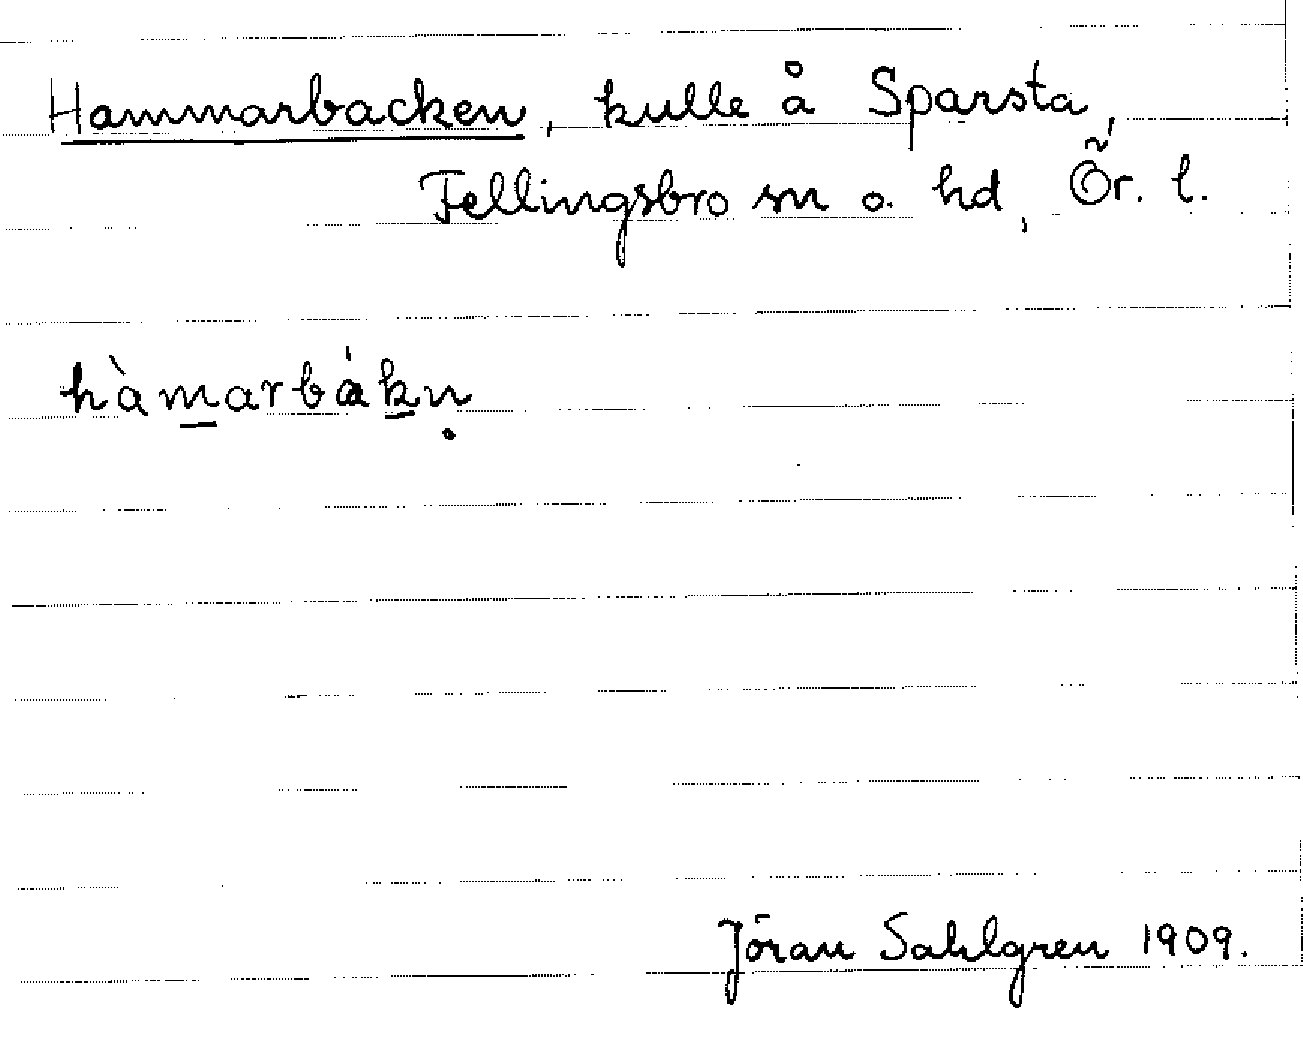 Hammarbacken, kulle å Sparsta,
Fellingsbro sn o. hd, Ör. l.
hàmarbákn̥
Jöran Sahlgren 1909.